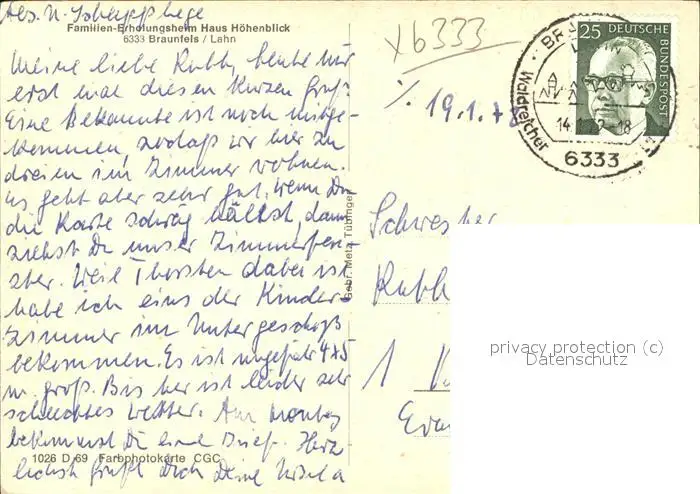 Abs. U.
Familien-Erholungsheim Haus Höhenblick
6333 Braunfels / Lahn
Meine liebe Ruth, heute nur
erst mal diesen kurzen Gruß.
Eine Bekannte ist noch mitge-
kommen, sodaß wir hier zu
dreien im Zimmer wohnen.
Es geht aber sehr gut, wenn Du
die Karte schräg hältst, dann
siehst Du unser Zimmerfen-
ster. Weil Thorsten dabei ist
habe ich eins der Kinder-
zimmer im Untergeschoß
bekommen. Es ist ungefähr 4x5
m. groß. Bis her ist leider sehr
schlechtes Wetter. Am Montag
bekommst Du eine Brief. Herz
lichst grüßt Dich Deine Ursula
1026 D 69 Farbphotokarte CGC
Gebr. Metz, Tübingen
x6333
19.1.78
25
DEUTSCHE
BUNDESPOST
6333
Schwester
Ruth
1
privacy protection (c)
Datenschutz